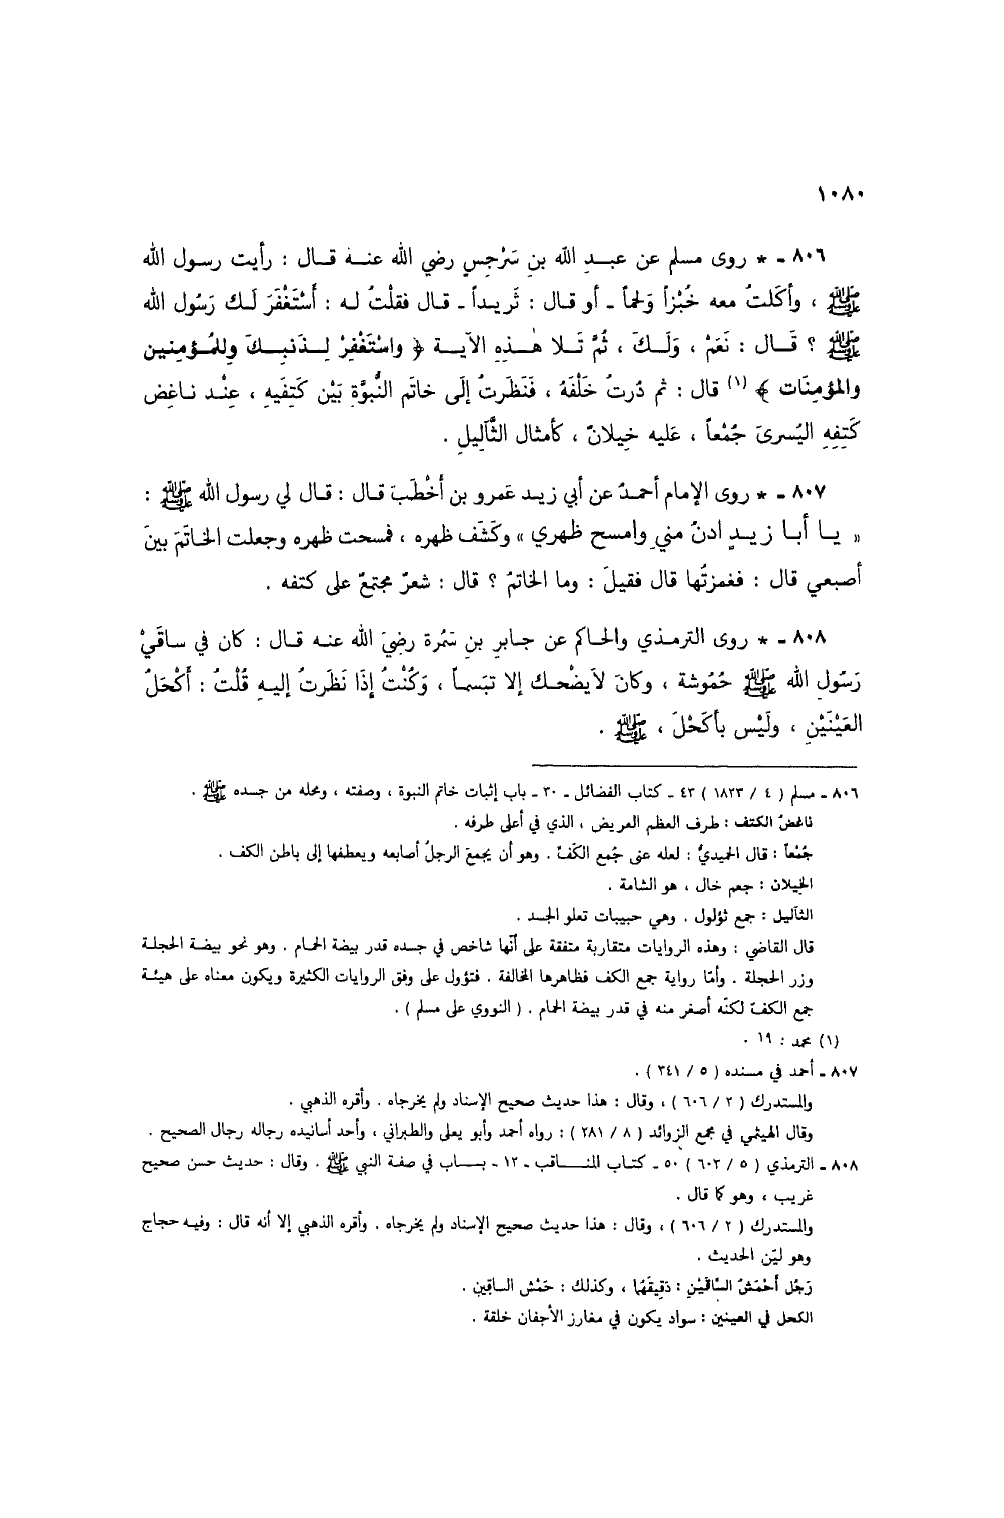 ١٠٨٠
٨٠٦ - * روى مسلم عن عبـدِ الله بنِ سَرْجِسٍ رضي الله عنـه قـال : رأيت رسول الله
ﷺ ، وأكلتُ معه خُبْزاً وَلحماً ـ أو قال : ثَريـداً ـ قـال فقلْتُ لـه : أَسْتَغْفَرَ لَـك رَسُول الله
ﷺ ؟ قَـال : نَعَمْ ، وَلَـكَ ، ثُمَّ تَـلا هٰـذِهِ الآيـة ﴿ واسْتَغْفِرْ لِـذَنبِـكَ وللمُـؤمِنين
والمؤمِنَات ﴾ (١) قال : ثم دُرتُ خَلْفَهُ ، فَنَظَرتُ إلَى خاتَم النُّبوَّةِ بَيْن كَتِفَيهِ ، عِنْد نـاغِض
كَتِفِهِ اليُسرىَ جُمْعاً ، عَليه خِيلانٌ ، كأمثال الثَّآلِيلِ .
٨٠٧ - * روى الإمام أحمـدُ عن أبي زيـد عَمرو بن أَخْطَبَ قـال : قـال لي رسول الله ﷺ :
« يـا أبـا زيـدٍ ادنُ منيِ وامسح ظهري » وكَشَف ظهره ، فمسحت ظهره وجعلت الخـاتَمَ بينَ
أصبعي قال : فغمزتُها قال فقيلَ : وما الخاتمُ ؟ قال : شعرٌ مجتمعٌ على كتفه .
٨٠٨ - * روى الترمـذي والحـاكم عن جـابرِ بنِ سَمُرة رضيَ الله عنـه قـال : كان في سـاقَيْ
رَسُولِ الله ﷺ حُمُوشة ، وكانَ لاَيضْحـك إلا تبَسمـاً ، وَكُنْتُ إذَا نَظَرتُ إليـهِ قُلْتُ : أَكْحَلُ
العَيْنَيْنِ ، ولَيْس بأكَحْلَ ، ﷺ .
٨٠٦ ـ مسلم ( ٤ / ١٨٢٣ ) ٤٣ ـ كتاب الفضائل ـ ٣٠ ـ باب إثبات خاتم النبوة ، وصفته ، ومحله من جسده ﷺ .
ناغضُ الكتف : طرف العظم العريض ، الذي في أعلى طرفه .
جُمْعاً : قال الحميديُّ : لعله عنى جُمع الكَفّ . وهو أن يجمعَ الرجلُ أصابعه ويعطفها إلى باطن الكف .
الخِيلان : جمع خال ، هو الشامة .
الثآليل : جمع ثؤلول . وهي حبيبات تعلو الجسد .
قال القاضي : وهذه الروايات متقاربة متفقة على أنّها شاخص في جسده قدر بيضة الحمـام . وهو نحو بيضـة الحجلـة
وزر الحجلة . وأمّا رواية جمع الكف فظاهرها المخالفة . فتؤول على وفق الروايات الكثيرة ويكون معناه على هيئـة
جمع الكفّ لكنّه أصغر منه في قدر بيضة الحمام . ( النووي على مسلم ) .
(١) محمد : ١٩ .
٨٠٧ ـ أحمد في مسنده ( ٥ / ٣٤١ ) .
والمستدرك ( ٢ / ٦٠٦ ) ، وقال : هذا حديث صحيح الإسناد ولم يخرجاه . وأقره الذهبي .
وقال الهيثمي في مجمع الزوائد ( ٨ / ٢٨١ ) : رواه أحمد وأبو يعلى والطبراني ، وأحد أسانيده رجاله رجال الصحيح .
٨٠٨ ـ الترمذي ( ٥ / ٦٠٣ ) ٥٠ ـ كتـاب المنـــاقب ـ ١٢ ـ بـــاب في صفـة النبي ﷺ . وقال : حديث حسن صحيح
غريب ، وهو كما قال .
والمستدرك ( ٢ / ٦٠٦ ) ، وقال : هذا حديث صحيح الإسناد ولم يخرجاه . وأقره الذهبي إلا أنه قال : وفيـه حجاج
وهو ليّن الحديث .
رَجُل أَحْمَشُ السَّاقَيْنِ : دَقِيقَهُا ، وكذلك : حَمْش الساقِين .
الكحل في العينين : سواد يكون في مغارز الأجفان خلقة .